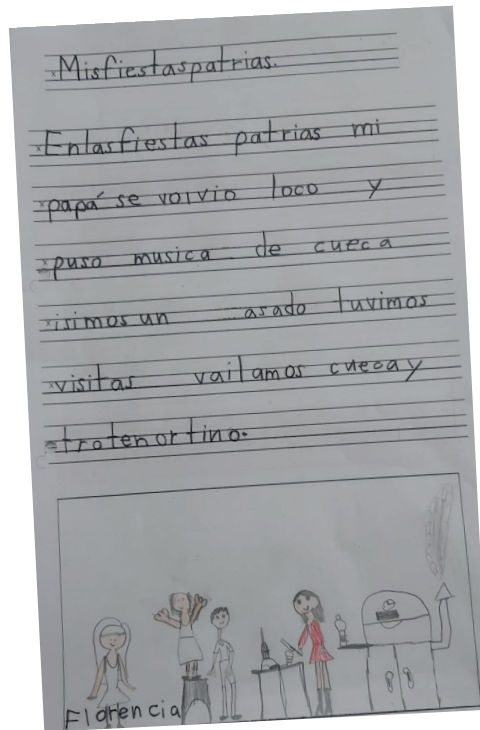 Misfiestaspatrias.
Enlasfiestas patrias mi
papá se volvio loco y
puso musica de cueca
isimos un asado tuvimos
visitas vailamos cuecay
trotenortino.
Florencia